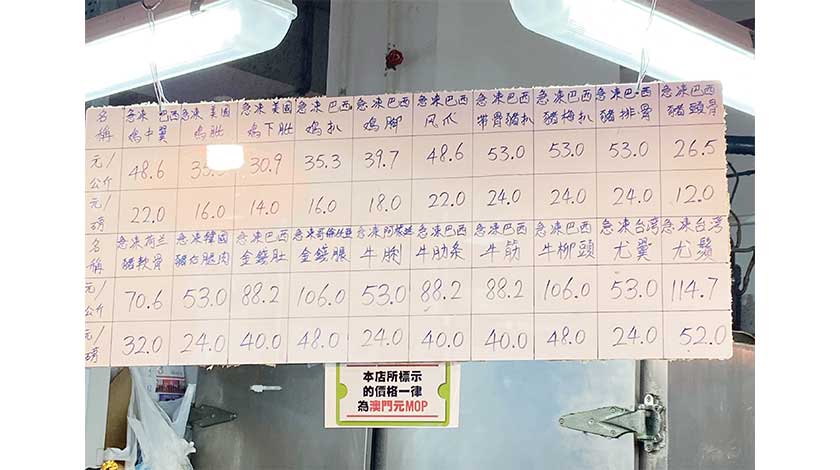 名 急凍巴西 急凍美國 急凍美國 急凍巴西 急凍巴西 急凍巴西 急凍巴西 急凍巴西 急凍巴西 急凍巴西
稱 鸡中翼 鸡肶 鸡下肶 鸡扒 鸡脚 凤爪 带骨豬扒 豬梅扒 豬排骨 豬頸骨
元/
公斤 48.6 30.9 35.3 39.7 48.6 53.0 53.0 53.0 26.5
元/
磅 22.0 16.0 14.0 16.0 18.0 22.0 24.0 24.0 24.0 12.0
名 急凍荷兰 急凍韓國 急凍巴西 急凍哥倫比亞 急凍阿根廷 急凍巴西 急凍巴西 急凍巴西 急凍台湾 急凍台湾
稱 豬軟骨 金錢肚 牛脷 牛肋条 牛筋 牛柳頭 尤翼 尤鬚
元/
公斤 70.6 53.0 88.2 106.0 53.0 88.2 88.2 106.0 53.0 114.7
元/
磅 32.0 24.0 40.0 48.0 24.0 40.0 40.0 48.0 24.0 52.0
本店所標示
的價格一律
為澳門元MOP